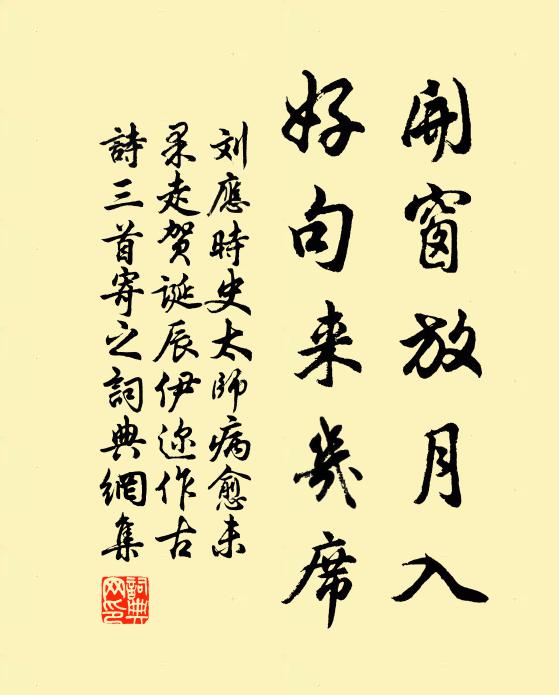 開窗放月入
好句来幾席
刘應時史太師病愈未
果走贺誕辰伊迩作古
詩三首寄之詞典網集
詞典网印